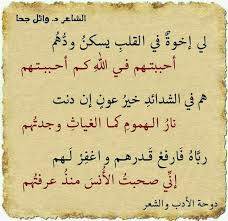 الشاعر د. وائل جحا
لي إخوةٌ في القلبِ يسكنُ ودُّهُم
أحببتهم في اللهِ كم أحببتهم
هم في الشدائدِ خيرُ عونٍ إن دنت
نارُ الهمومِ كما الغياثِ وجدتُهم
ربّاهُ فارفعْ قدرهم و اغفِرْ لهم
إنّي صحبتُ الأُنسَ منذُ عرفتُهم
دوحة الأدب والشعر